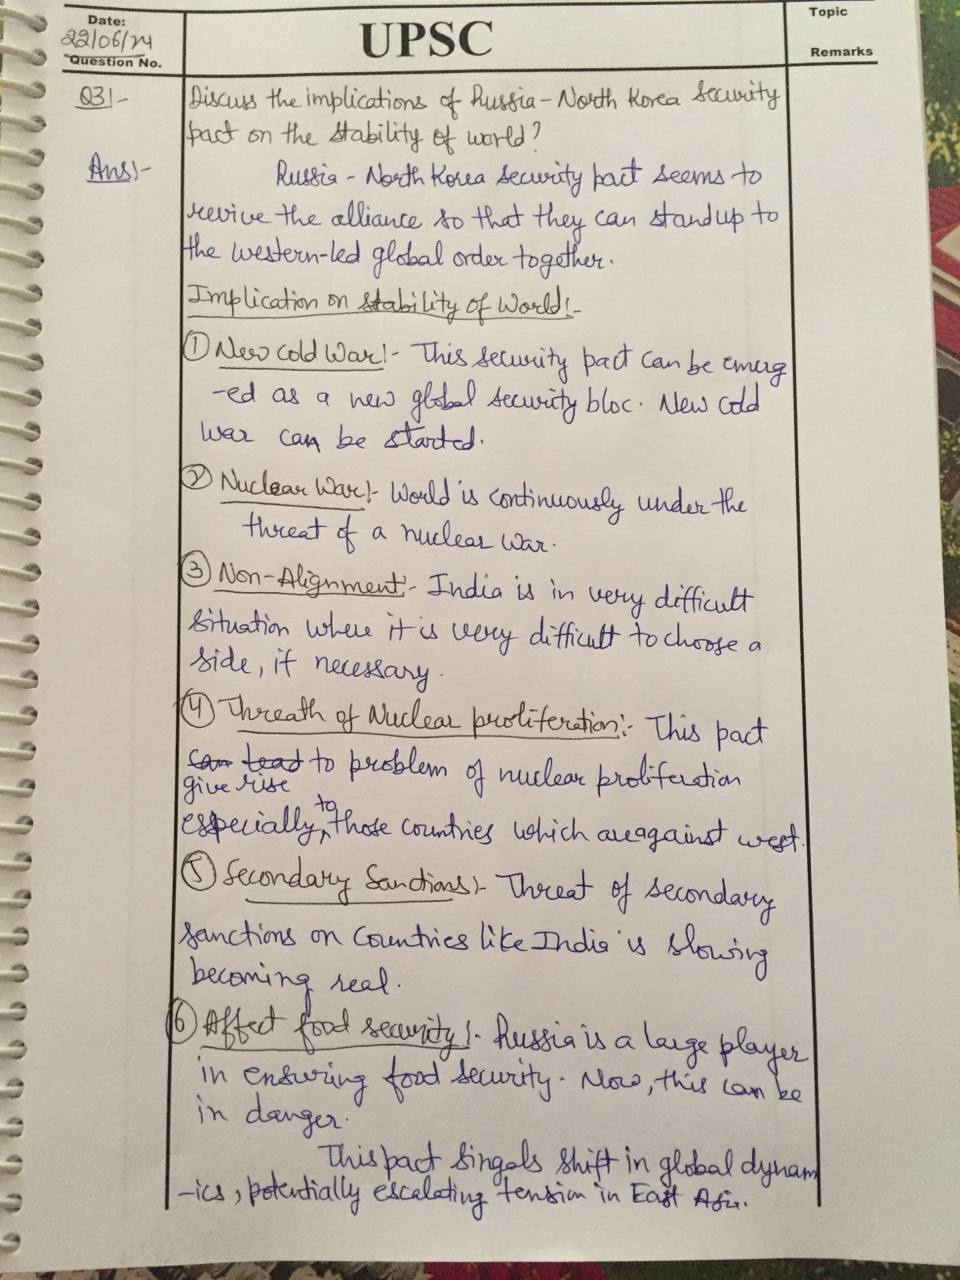 Date:
22/06/24
Question No.
UPSC
Topic
Remarks
Q3:-
Discuss the implications of Russia-North Korea Security
pact on the stability of world?
Ans:-
Russia - North Korea security pact seems to
revive the alliance so that they can standup to
the western-led global order together.
Implication on stability of World:-
① New cold War:- This security pact can be emerg
-ed as a new global security bloc. New cold
war can be started.
② Nuclear War:- World is continuously under the
threat of a nuclear war.
③ Non-Alignment:- India is in very difficult
situation where it is very difficult to choose a
side, if necessary.
④ Threath of Nuclear proliferation:- This pact
can lead to problem of nuclear proliferation
give rise
especially, to those countries which are against west.
⑤ Secondary Sanctions:- Threat of secondary
sanctions on countries like India is slowing
becoming real.
⑥ Affect food security:- Russia is a large player
in ensuring food security. Now, this can be
in danger.
This pact singals shift in global dynam
-ics, potentially escalating tension in East Asia.